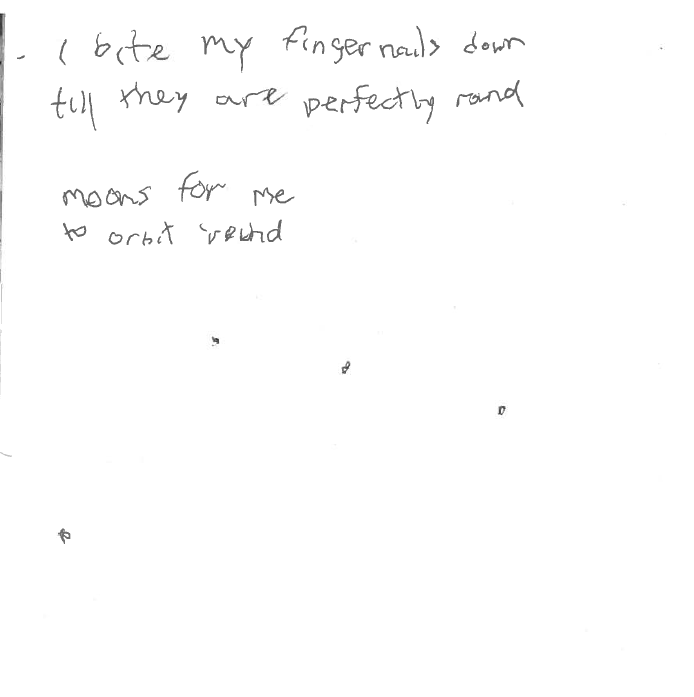 - I bite my fingernails down
till they are perfectly round
moons for me
to orbit 'round